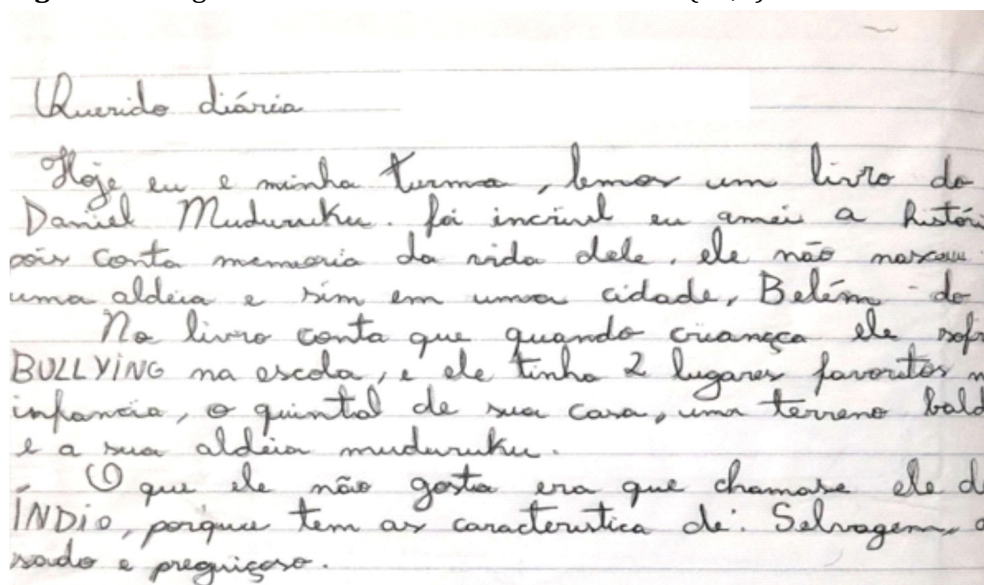 Querido diária
Hoje eu e minha turma, lemos um livro do
Daniel Muduruku. foi incrivel eu amei a históri
pois conta memoria da vida dele, ele não nasceu
uma aldeia e sim em uma cidade, Belém do
No livro conta que quando criançça ele sofr
BULLYING na escola, e ele tinha 2 lugares favoritos n
infancia, o quintal de sua casa, uma terreno bald
e a sua aldeia muduruku.
O que ele não gosta era que chamase ele d
ÍNDIO, porque tem as caracteristica de: Selvagem, a
sado e preguiçoso.